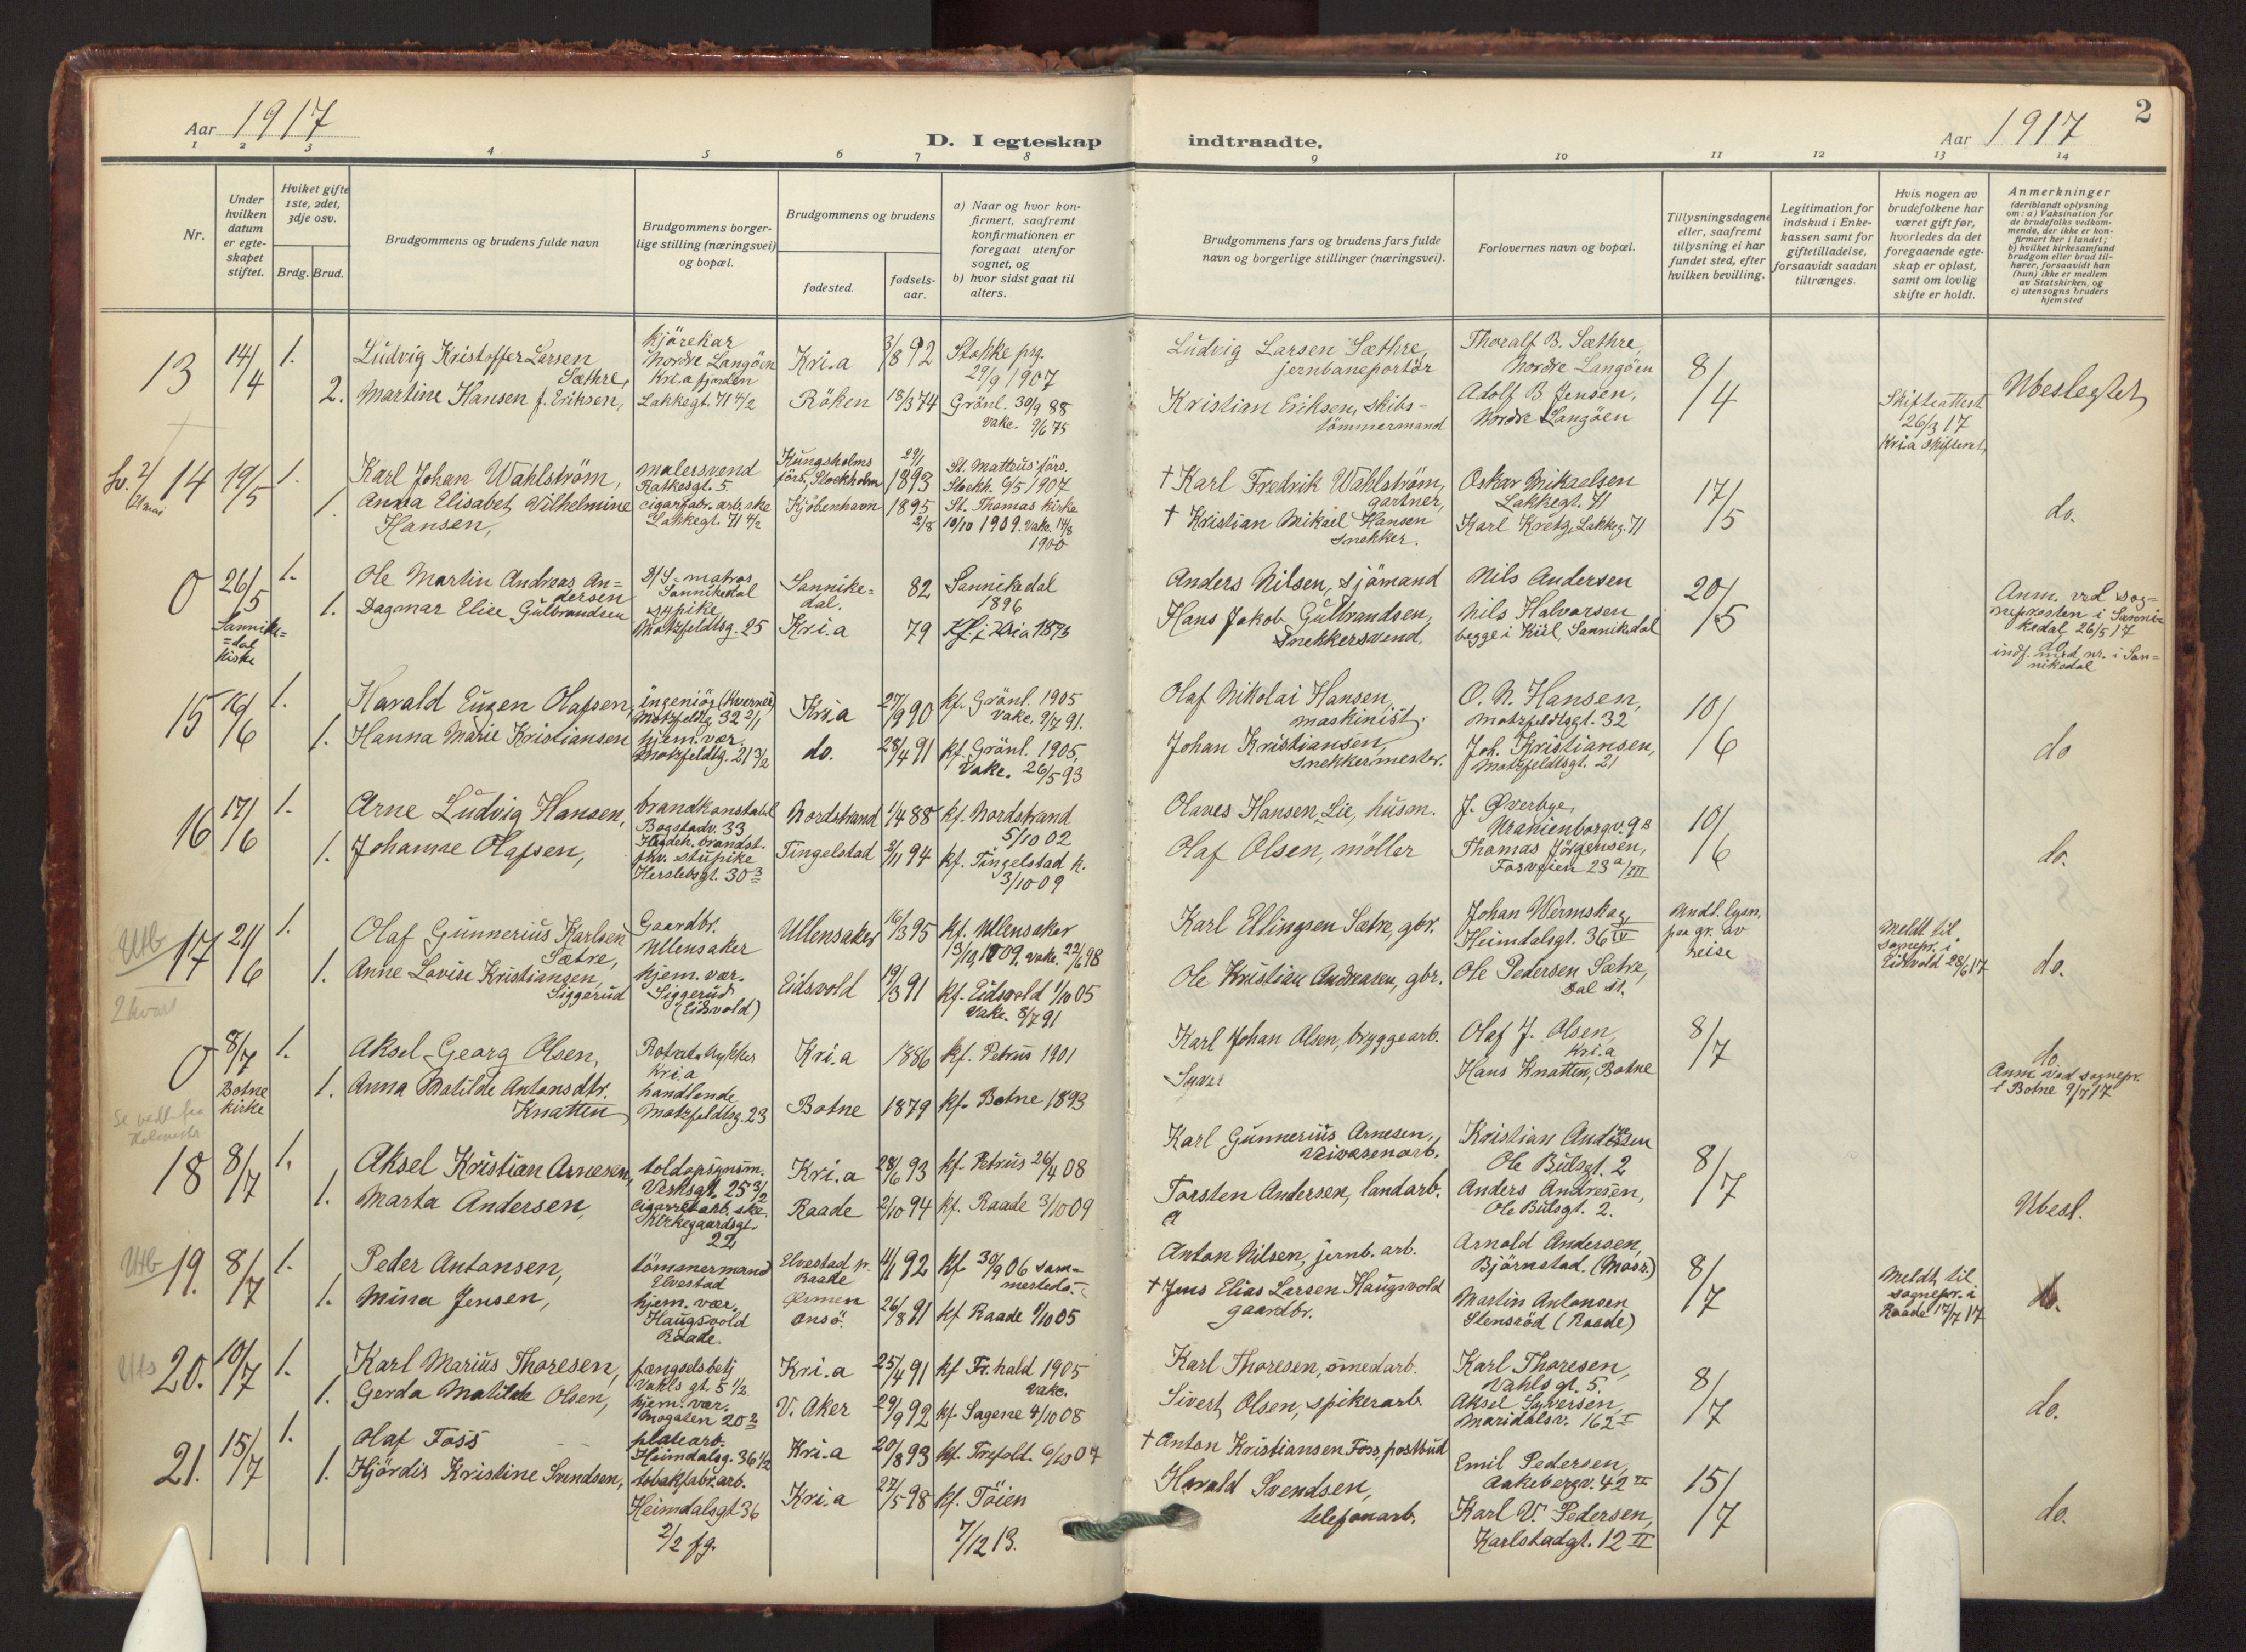 Aar 1917
D. I egteskap
1 2 3 4 5 6 7 8
Nr.
Under hvilken datum er egteskapet stiftet.
Hvilket gifte 1ste, 2det, 3dje osv.
Brdg. Brud.
Brudgommens og brudens fulde navn
Brudgommens borgerlige stilling (næringsvei) og bopæl.
Brudgommens og brudens
fødested.
fødselsaar.
a) Naar og hvor konfirmert, saafremt konfirmationen er foregaat utenfor sognet, og
b) hvor sidst gaat til alters.
indtraadte.
Aar 1917
2
9 10 11 12 13 14
Brudgommens fars og brudens fars fulde navn og borgerlige stillinger (næringsvei).
Forlovernes navn og bopæl.
Tillysningsdagene eller, saafremt tillysning ei har fundet sted, efter hvilken bevilling.
Legitimation for indskud i Enkekassen samt for giftetilladelse, forsaavidt saadan tiltrænges.
Hvis nogen av brudefolkene har været gift før, hvorledes da det foregaaende egteskap er opløst, samt om lovlig skifte er holdt.
Anmerkninger
(deriblandt oplysning om: a) Vaksination for de brudefolks vedkommende, der ikke er konfirmert her i landet; b) hvilket kirkesamfund brudgom eller brud tilhører, forsaavidt han (hun) ikke er medlem av Statskirken, og c) utensogns bruders hjemsted
13 14/4 1. Ludvig Kristoffer Larsen Sæthre, kjörekar Nordre Langöen Kri.a fjorden Kri.a 3/8 92 Stokke prg. 29/9 1907
2. Martine Hansen f. Eriksen, Lakkegt. 71 4/2 Röken 18/3 74 Grönl. 30/9 88 vake. 9/6 75
Ludvig Larsen Sæthre, jernbaneportör Thoralf B. Sæthre, Nordre Langöen 8/4
Kristian Eriksen, skibstömmermand Adolf B Jensen, Nordre Langöen Skifteattest 26/3 17 Kria Skifteret Ubeslegtet
14 19/5 1. Karl Johan Wahlström, malersvend Ratkesgt. 5 Kungsholms förs, Stockholm 29/1 1893 St. Matteus förs. Stockh. 9/5 1907
1. Anna Elisabet Vilhelmine Hansen, cigarfabr. arb.ske Lakkegt. 71 4/2 Kjöbenhavn 1895 2/8 St. Thomas kirke 10/10 1909. Vake. 14/8 1900
† Karl Fredrik Wahlström, gartner, Oskar Mikaelsen Lakkegt. 71 17/5
† Kristian Mikael Hansen snekker. Karl Kretz, Lakkeg. 71 do.
0 26/5 Sannikedal kirke 1. Ole Martin Andreas Andersen matros Sannikedal Sannikedal. 82 Sannikedal 1896
1. Dagmar Elise Gulbrandsen sypike Motzfeldtsg. 25 Kri.a 79
Anders Nilsen, sjömand Nils Andersen 20/5
Hans Jakob Gulbrandsen, Snekkersvend. Nils Halvorsen begge i Kiil, Sannikedal
Anm. ved sogneprosten i Sannikedal 26/5 17
15 16/6 1. Harald Eugen Olafsen, ingeniör Motzfeldtg. 32 2/1 Kri.a 27/9 90 kf. Grönl. 1905 Vake. 9/7 91.
1. Hanna Marie Kristiansen hjem. vær. Motzfeldtg. 21 3/2 do. 28/4 91 kf. Grönl. 1905, Vake. 26/5 93
Olaf Nikolai Hansen, maskinist. O. N. Hansen, Motzfeldtsgt. 32 10/6
Johan Kristiansen, snekkermester. Joh. Kristiansen, Motzfeldtsgt. 21 do
16 17/6 1. Arne Ludvig Hansen, brandkonstabel Bogstadv. 33 Hegdeh. brandst. Nordstrand 1/4 88 kf. Nordstrand 5/10 02
1. Johanne Olafsen, fhv. stupike Herslebsgt. 30 3 Tingelstad 2/11 94 kf. Tingelstad k. 3/10 09
Olaves Hansen Lie, husm. J. Øverbye, Uranienborgv. 9 B 10/6
Olaf Olsen, möller Thomas Jörgensen, Fosveien 23 a/III do.
Utb 17 21/6 1. Olaf Gunnerius Karlsen Sætre, Gaardbr. Ullensaker Ullensaker 16/3 95 kf. Ullensaker 13/10 1909. vake. 22/6 98
2 kvart 1. Anne Lovise Kristiansen, Siggerud hjem. vær. Siggerud (Eidsvold) Eidsvold 19/3 91 kf. Eidsvold 1/10 05 Vake. 8/7 91
Karl Ellingsen Sætre, gbr. Johan Wermskag, Heimdalsgt. 36 IV Undt. lysn. paa gr. av reise
Ole Kristian Andreasen, gbr. Ole Pedersen Sætre, Dal st. Meldt til sognepr. i Eidsvold 28/6 17 do.
0 8/7 Botne kirke 1. Aksel Georg Olsen, Kri.a Kri.a 1886 kf. Petrus 1901
1. Anna Matilde Antonsdtr. Knatten handlende Motzfeldtsg. 23 Botne 1879 kf. Botne 1893
Karl Johan Olsen, bryggearb. Olaf J. Olsen, Kri.a 8/7
Syver Hans Knatten, Botne do. Anm. ved sognepr. i Botne 9/7 17
18 8/7 1. Aksel Kristian Arnesen, toldopsynsm. Verksgt. 25 3/2 Kri.a 28/6 93 kf. Petrus 26/4 08
1. Marta Andersen, cigarretarb. ske. Kirkegaardsgt. 22 Raade 2/10 94 kf. Raade 3/10 09
Karl Gunnerius Arnesen, veivæsenarb. Kristian Andersen Ole Bulsgt. 2 8/7
Torsten Andersen, landarb. Anders Andresen, Ole Bulsgt. 2. Ubesl.
Utb 19. 8/7 1. Peder Antonsen, tömmermand Elvestad Elvestad pr. Raade 11/1 92 kf 30/9 06 sammesteds.
1. Mina Jensen, hjem. vær. Haugsvold Raade onsö. 26/8 91 kf Raade 1/10 05
Anton Nilsen, jernb. arb. Arnold Andersen, Björnstad. (Moss.) 8/7
† Jens Elias Larsen Haugsvold gaardbr. Martin Antonsen Stensröd (Raade) Meldt til sognepr. i Raade 17/7 17 do.
20. 10/7 1. Karl Marius Thoresen, fængselsbetj Vahls gt. 5 1/2 Kri.a 25/4 91 kf Fr.hald 1905 vake.
1. Gerda Matilde Olsen, hjem. vær. Mogaten 20 2 V. Aker 29/9 92 kf. Sagene 4/10 08
Karl Thoresen, smedarb. Karl Thoresen, Vahls gt. 5. 8/7
Sivert Olsen, spikerarb. Aksel Syversen, Maridalsv. 162 I do.
21. 15/7 1. Olaf Foss platearb. Heimdalsg. 36 1/2 Kri.a 20/8 93 kf. Trefold. 6/10 07
1. Hjördis Kristine Svendsen, tobakfabr.arb. Heimdalsgt 36 2/2 fg. Kri.a 27/5 98 kf. Töien 7/12 13.
† Anton Kristiansen Foss, postbud Emil Pedersen, Aakebergv. 42 II 15/7
Harald Svendsen, telefonarb. Karl V. Pedersen, Karlstadgt. 12 II do.